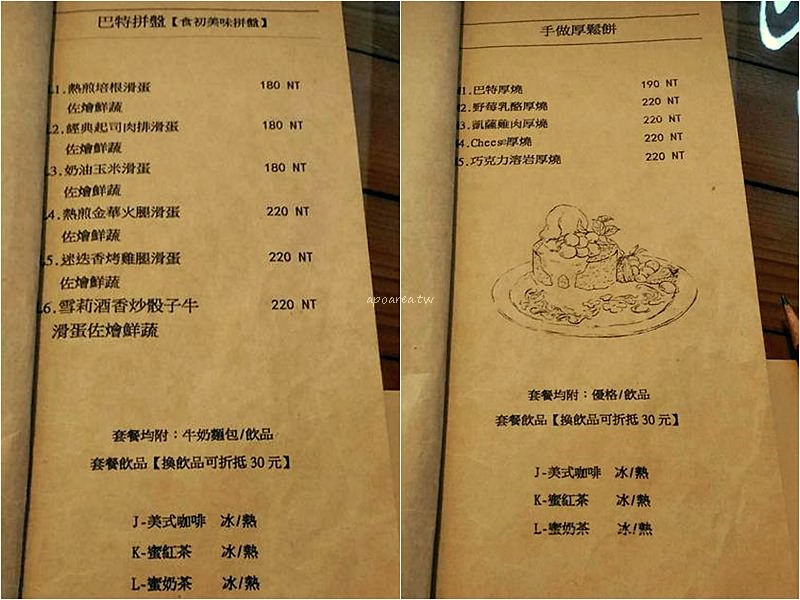 巴特拼盤【食初美味拼盤】
1.熱煎培根滑蛋 180 NT
佐燴鮮蔬
2.經典起司肉排滑蛋 180 NT
佐燴鮮蔬
3.奶油玉米滑蛋 180 NT
佐燴鮮蔬
4.熱煎金華火腿滑蛋 220 NT
佐燴鮮蔬
5.迷迭香烤雞腿滑蛋 220 NT
佐燴鮮蔬
6.雪莉酒香炒骰子牛 220 NT
滑蛋佐燴鮮蔬
套餐均附：牛奶麵包/飲品
套餐飲品【換飲品可折抵30元】
J-美式咖啡 冰/熱
K-蜜紅茶 冰/熱
L-蜜奶茶 冰/熱
手做厚鬆餅
1.巴特厚燒 190 NT
2.野莓乳酪厚燒 220 NT
3.凱薩雞肉厚燒 220 NT
4.Cheese厚燒 220 NT
5.巧克力溶岩厚燒 220 NT
apoareatw
套餐均附：優格/飲品
套餐飲品【換飲品可折抵30元】
J-美式咖啡 冰/熱
K-蜜紅茶 冰/熱
L-蜜奶茶 冰/熱